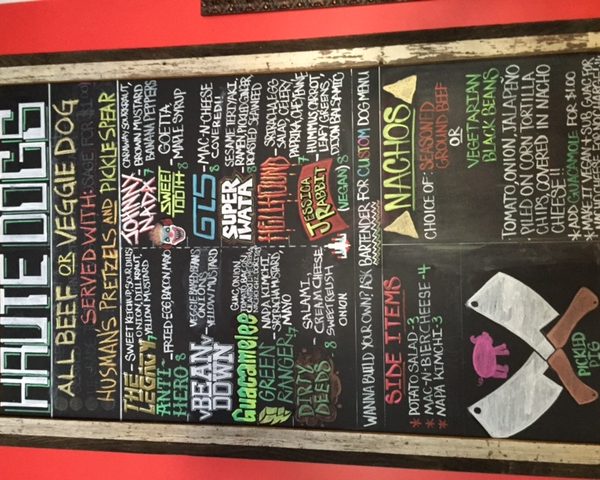 HAUTE DOGS
ALL BEEF OR VEGGIE DOG
SERVED WITH:
HUSMAN'S PRETZELS AND PICKLE SPEAR
THE LEGACY
- SWEET KETCHUP, SOUR DILLS,
ONION, DILL KRAUT,
YELLOW MUSTARD
ANTI-
HERO 8
- FRIED EGG, BACON, MAYO
VBEAN
DOWN
VEGGIE BAKED BEANS
ONIONS
YELLOW MUSTARD
Guacamelee
GUAC, ONION,
GREEN
RANGER 7
NAPA KIMCHI,
SRIRACHA MUSTARD,
MAYO
DIRTY
DEEDS 8
- SALAMI,
CREAM CHEESE,
SWEET RELISH
ONION
JOHNNY
NADA 7
BROWN MUSTARD
BANANA PEPPERS
SWEET
TOOTH 8
- GOETTA,
MAPLE SYRUP
GLS 8
- MAC-N-CHEESE
COVERED!!
SUPER
IWATA 8
SESAME TERIYAKI,
ROASTED SEAWEED
HELLHOUND
SRIRACHA EGG
SALAD, CELERY,
PAPRIKA, CAYENNE
JESSICA
RABBIT
(VEGAN) 8
HUMMUS, CARROT,
ONION, GREENS,
DIJON BALSAMIC
WANNA BUILD YOUR OWN? ASK BARTENDER FOR CUSTOM DOG MENU
SIDE ITEMS
* POTATO SALAD - 3
* MAC-N-BIER CHEESE - 4
* NAPA KIMCHI - 3
PICKLED
PIG
NACHOS 7
CHOICE OF: SEASONED
GROUND BEEF
OR
VEGETARIAN
BLACK BEANS
TOMATO, ONION, JALAPENO
PILED ON CORN TORTILLA
CHIPS, COVERED IN NACHO
CHEESE!!
* ADD GUACAMOLE FOR $1.00
* MAKE IT VEGAN & SUB GUAC FOR